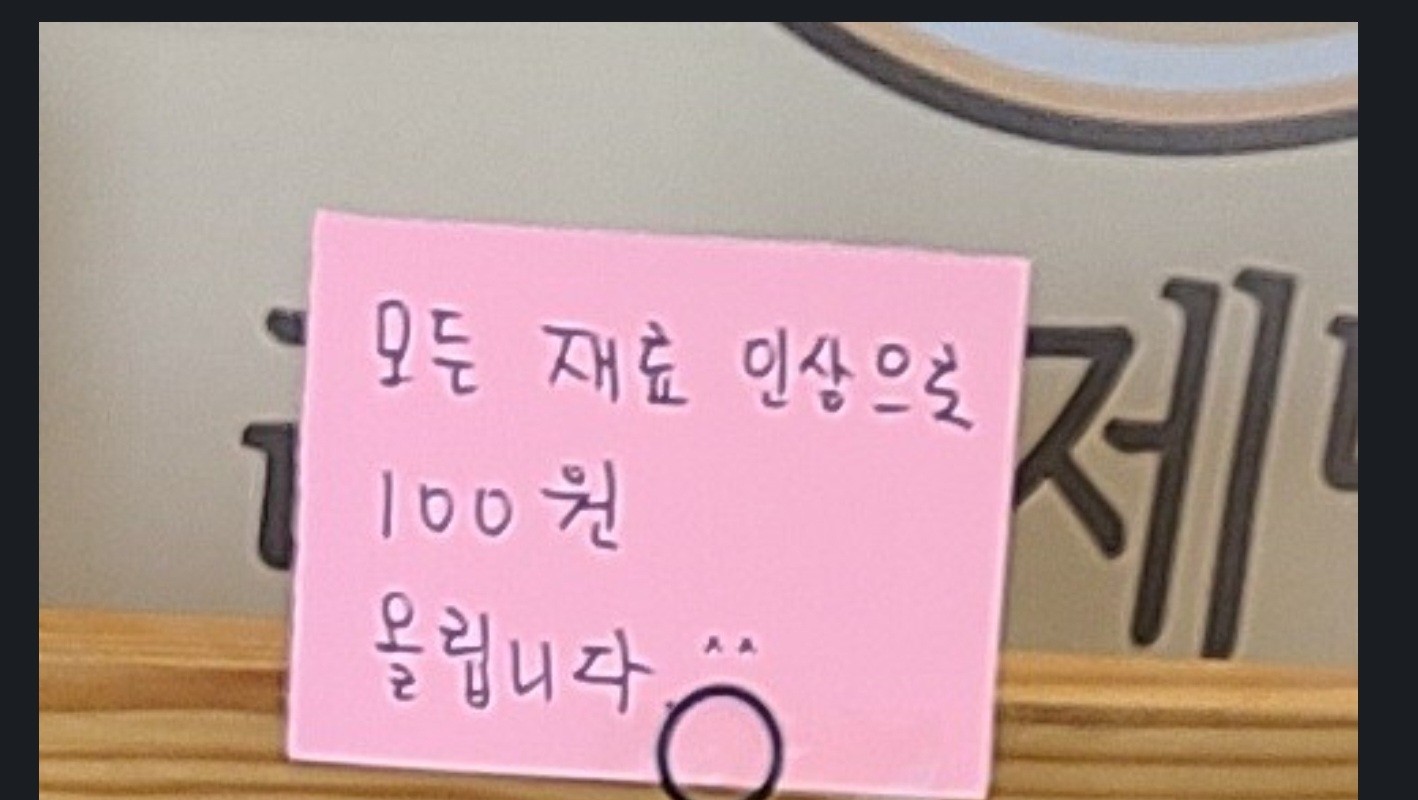 모든 재료 인상으로
100원
올립니다. ^^
제